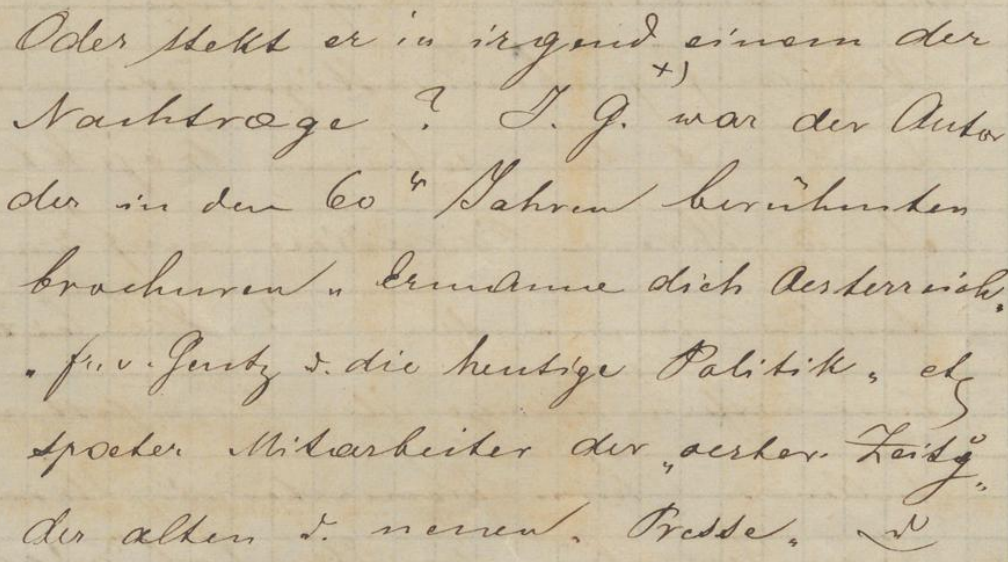 Oder stekt er in irgend einem der
Nachtræge ? I. G. +) war der Autor
der in den 60er Jahren berühmten
brochuren „ Ermanne dich Oesterreich„
„ fr. v. Gentz u. die heutige Politik „ etc
spæter Mitarbeiter der „oester. Zeitg„
der alten u. neuen „ Presse „ u